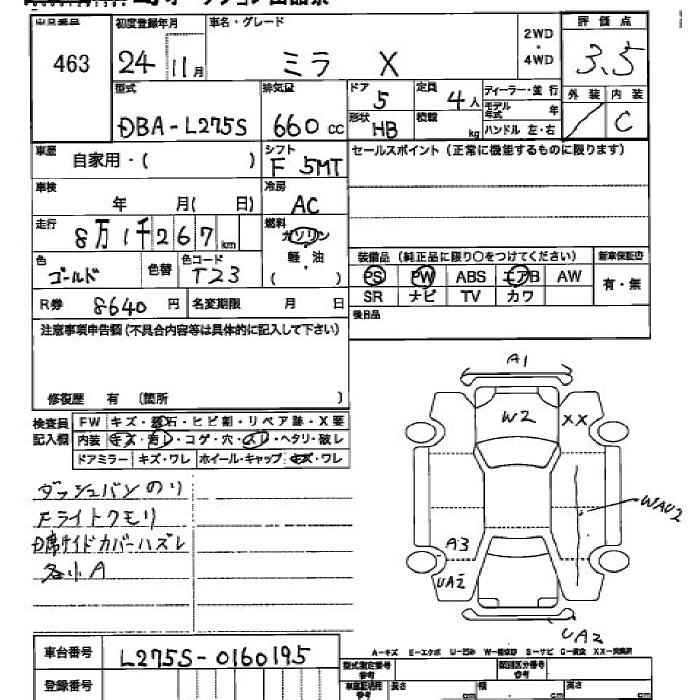 出品番号 463
初度登録年月 24 11月
車名・グレード ミラ X
2WD・4WD
評価点 3.5
外装 内装 C
型式 DBA-L275S
排気量 660 cc
ドア 5
形状 HB
定員 4人
積載 kg
ディーラー・並行
モデル年式 年
ハンドル 左・右
車歴 自家用・( )
シフト F 5MT
セールスポイント (正常に機能するものに限ります)
車検 年 月( 日)
冷房 AC
走行 8万1千267km
燃料 ガソリン
軽・油
( )
色 ゴールド 色替
色コード T23
装備品 (純正品に限り○をつけてください)
新車保証書
PS PW ABS エアB AW
有・無
SR ナビ TV カワ
R券 8640 円
名変期限 月 日
後日品
注意事項申告欄 (不具合内容等は具体的に記入して下さい)
修復歴 有 (箇所 )
検査員記入欄
FW キズ・飛石・ヒビ割・リペア跡・X要
内装 キズ・汚レ・コゲ・穴・スレ・ヘタリ・破レ
ドアミラー キズ・ワレ ホイール・キャップ キズ・ワレ
ダッシュバンのり
Fライトクモリ
D席サイドカバーハズレ
各小A
A1
W2
XX
WAU2
A3
UA2
UA2
A-キズ E-エクボ U-凹み W-補修跡 S-サビ C-腐食 XX-交換済
車台番号 L275S-0160195
登録番号
型式指定番号 参考
類別区分番号 参考
車庫証明用 参考
長さ cm
幅 cm
高さ cm